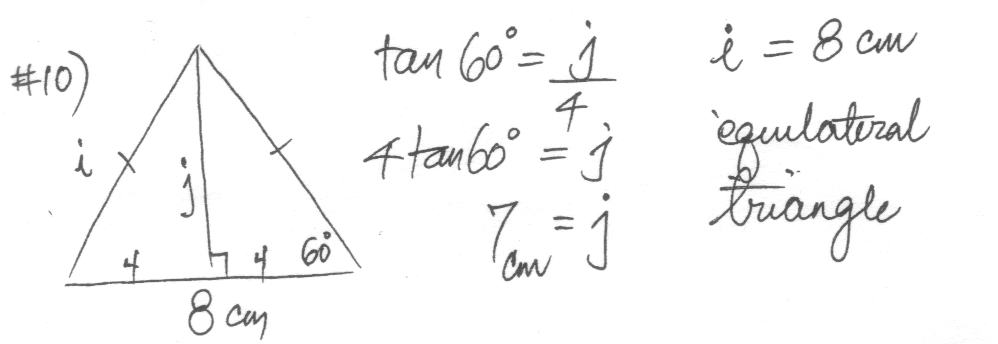 #10)
i
j
4
4
60°
8 cm
tan 60° = j/4
4 tan 60° = j
7 cm = j
i = 8 cm
equilateral
triangle